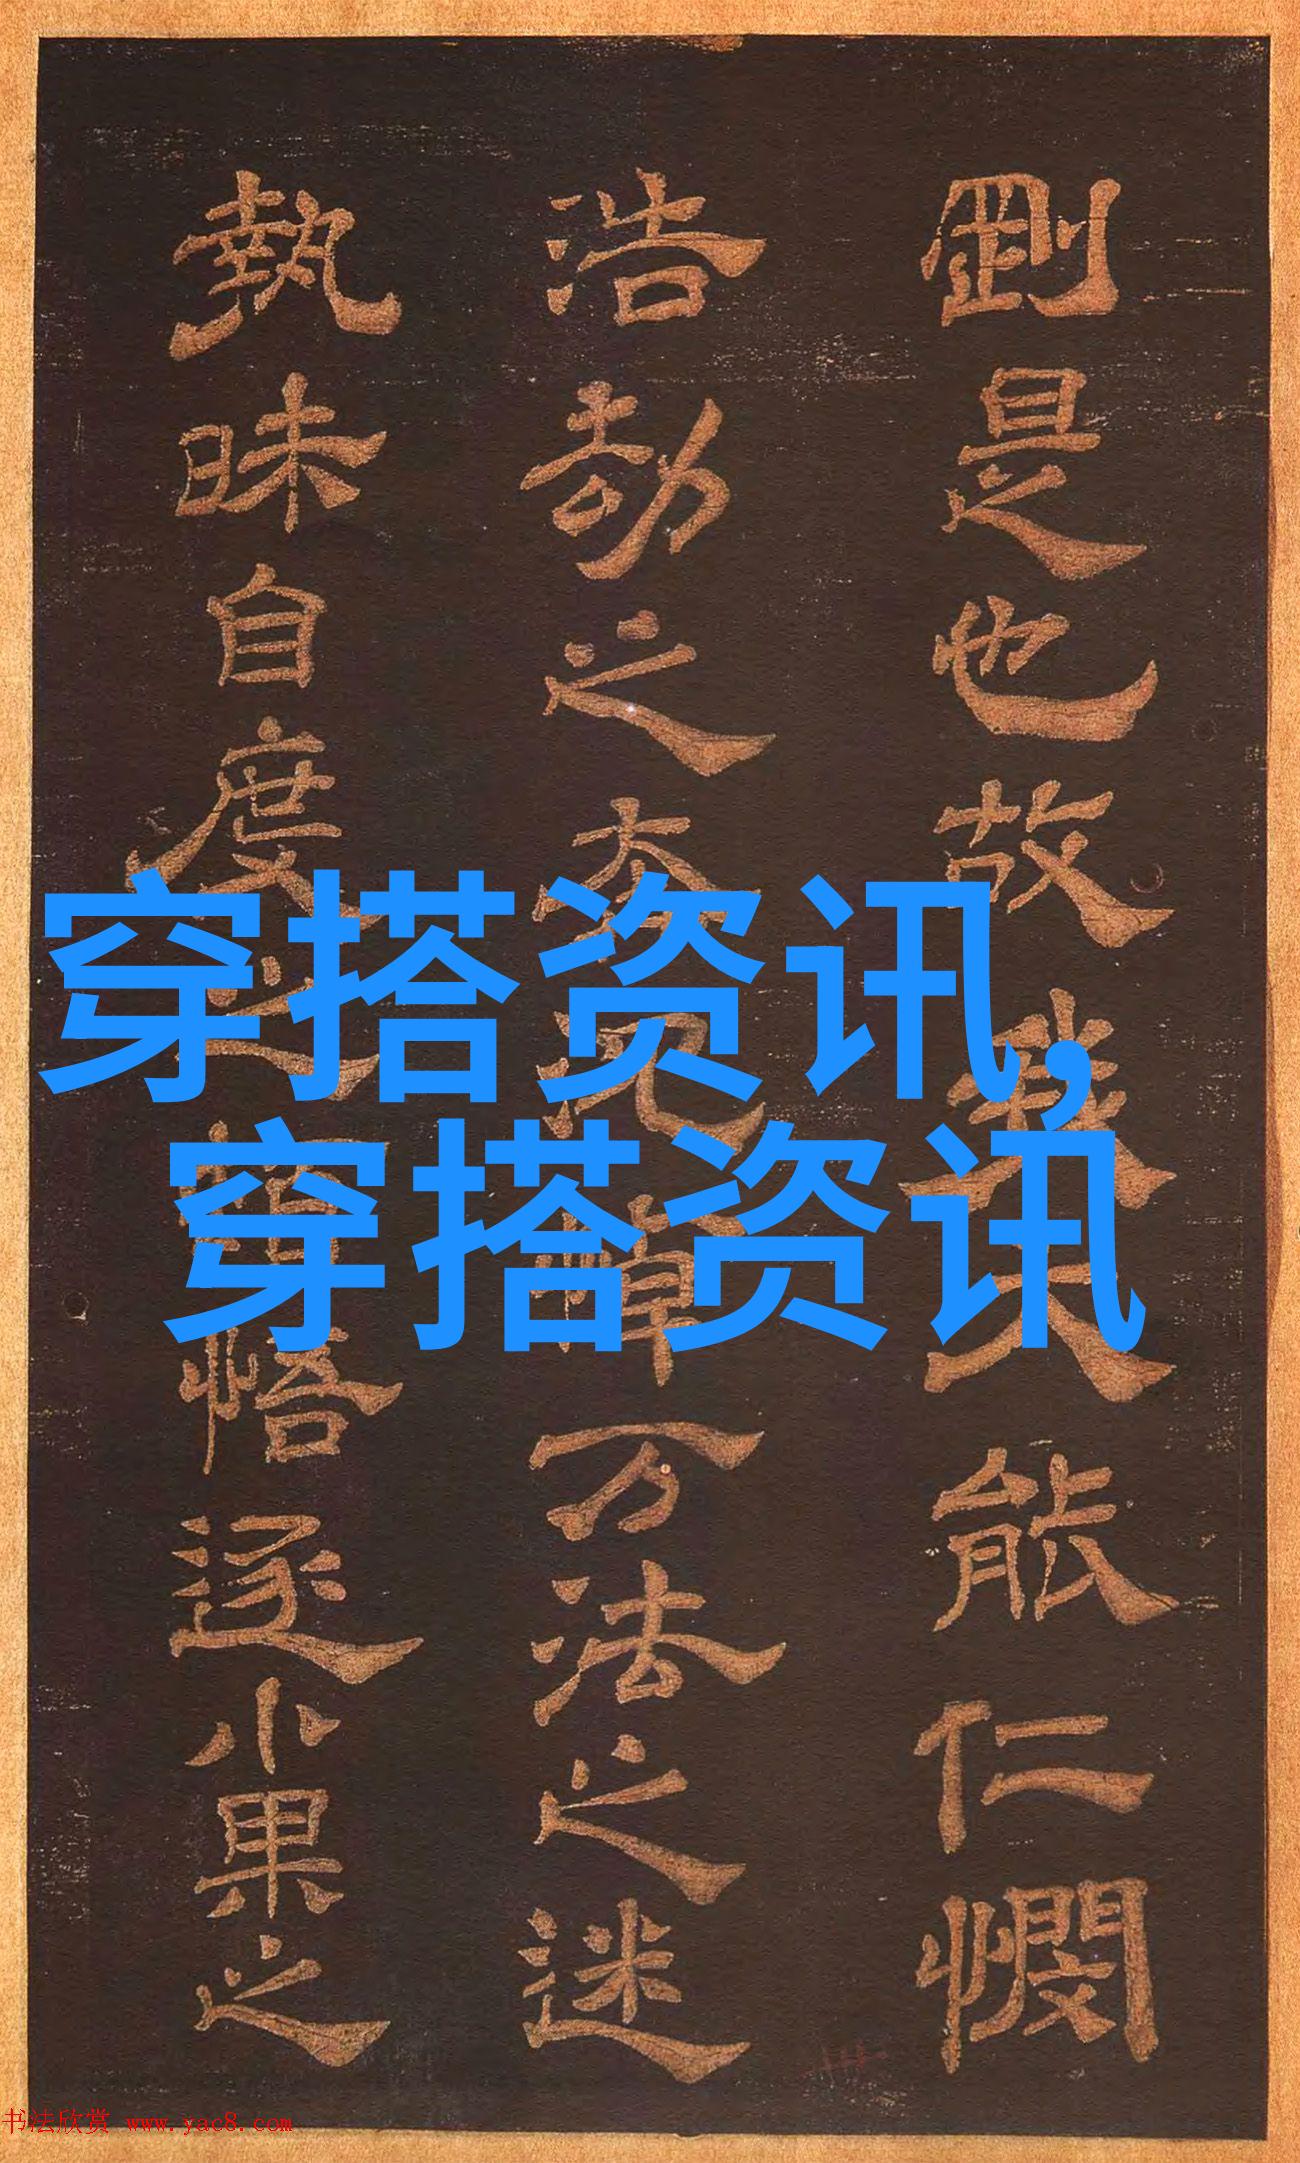 剛是也故我大能仁憫
浩劫之大迷悼万法之迷
執昧自度之悟遂小果之
穿搭资讯,
穿搭资讯
书法欣赏 www.yac8.com